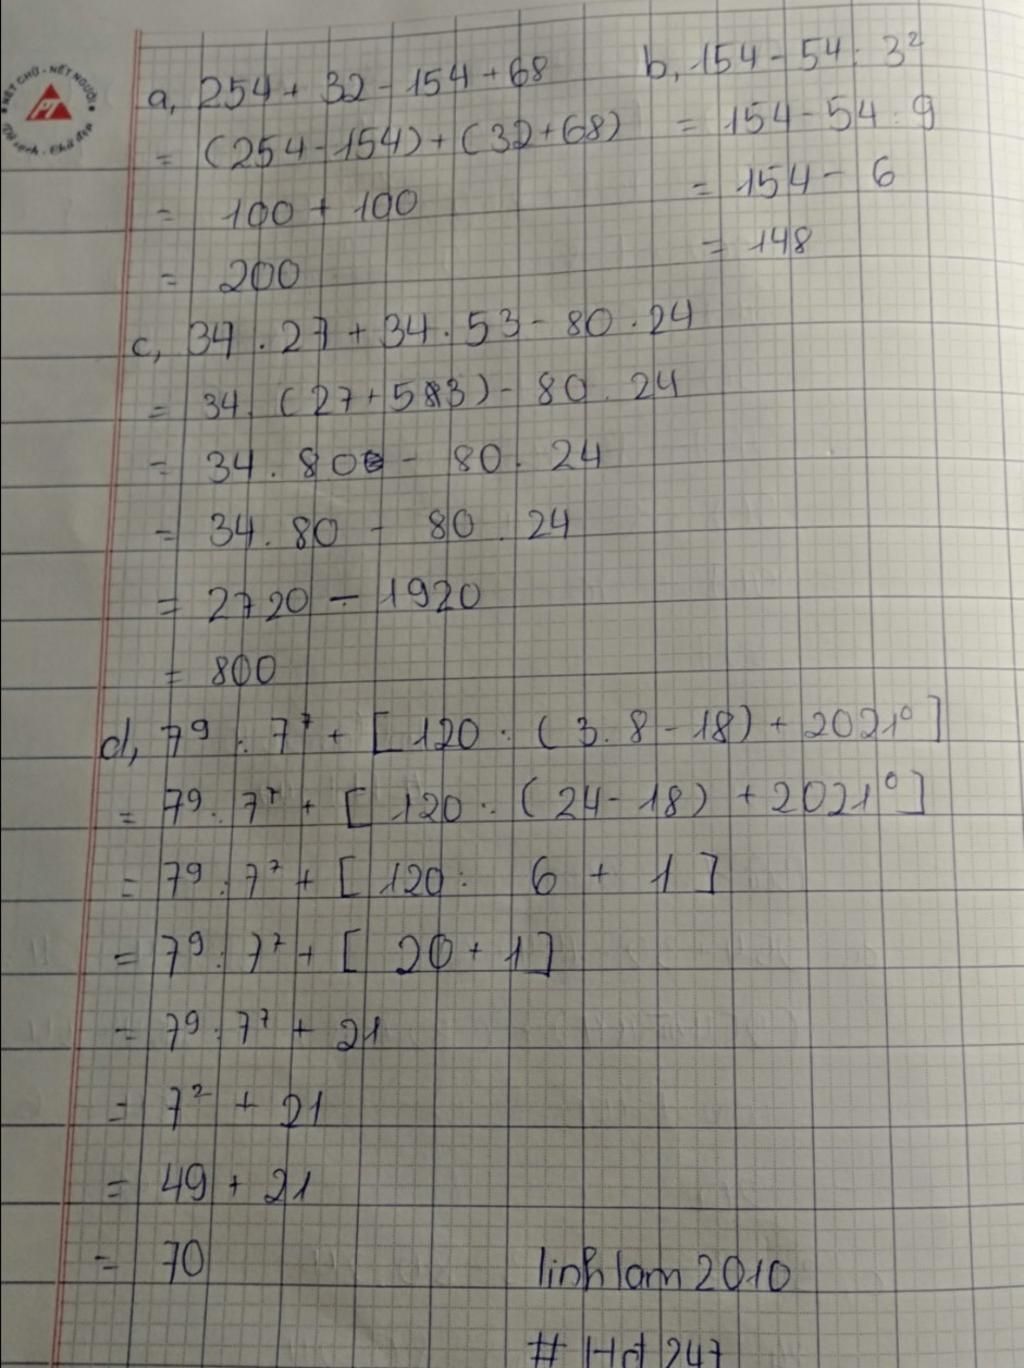 NÉT CHỮ - NẾT NGƯỜI
PT
a, 254 + 32 - 154 + 68
= (254 - 154) + (32 + 68)
= 100 + 100
= 200
b, 154 - 54 : 3²
= 154 - 54 : 9
= 154 - 6
= 148
c, 34 . 27 + 34 . 53 - 80 . 24
= 34 . (27 + 53) - 80 . 24
= 34 . 80 - 80 . 24
= 34 . 80 - 80 . 24
= 2720 - 1920
= 800
d, 7⁹ : 7⁷ + [ 120 : ( 3 . 8 - 18) + 2021⁰ ]
= 7⁹ : 7⁷ + [ 120 : ( 24 - 18) + 2021⁰ ]
= 7⁹ : 7⁷ + [ 120 : 6 + 1 ]
= 7⁹ : 7⁷ + [ 20 + 1 ]
= 7⁹ : 7⁷ + 21
= 7² + 21
= 49 + 21
= 70
linhlam2010
# Hd 247